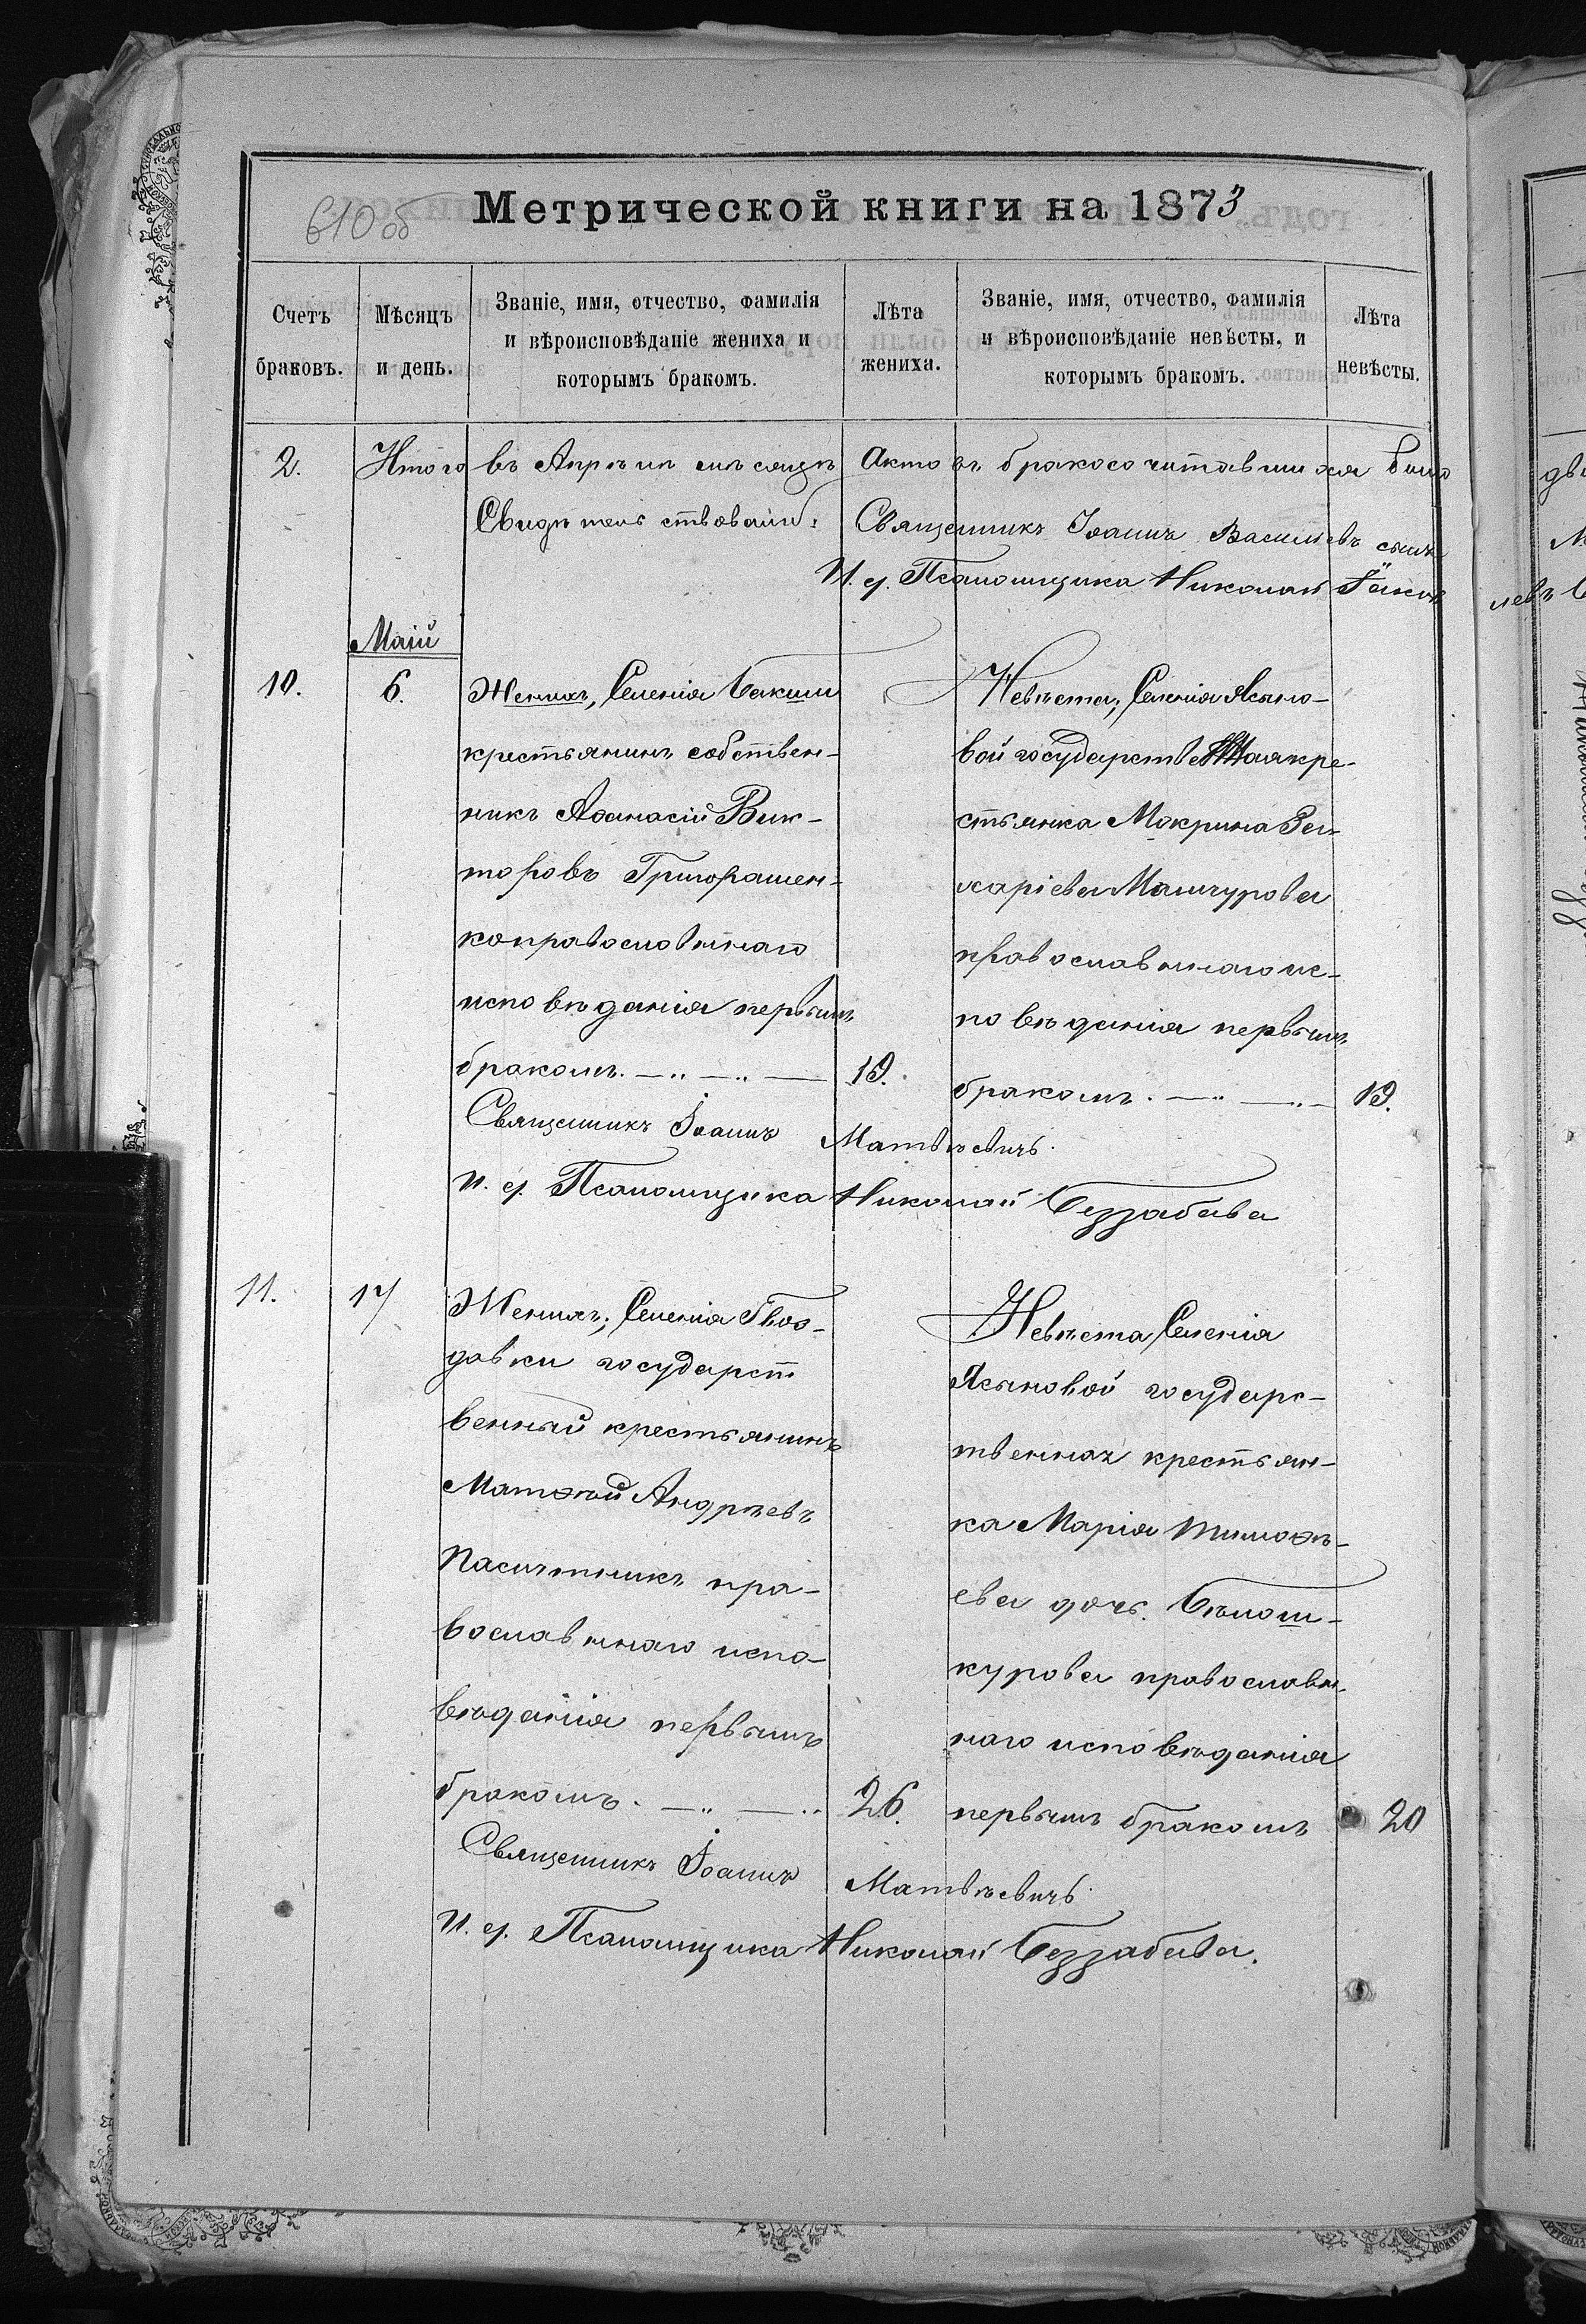 610 об
Метрической книги на 1873
Счетъ браковъ.
Мѣсяцъ и день.
Званіе, имя, отчество, фамилія и вѣроисповѣданіе жениха и которымъ бракомъ.
Лѣта жениха.
Званіе, имя, отчество, фамилія и вѣроисповѣданіе невѣсты, и которымъ бракомъ.
Лѣта невѣсты.
2. Итого въ Апрѣлѣ мѣсяцѣ Актовъ бракосочитавшихся было
Свидѣтельствовалъ: Священникъ Іоаннъ Васильевъ сынъ
И. д. Псаломщика Николай
Маій
10.
6.
Женихъ, Селенія Бакши
крестьянинъ собствен-
никъ Аѳанасій Вик-
торовъ Григорашен-
ко православнаго
исповѣданія первымъ
бракомъ.
19.
Невѣста; Селенія Ясыно-
вой государственная кре-
стьянка Макрина За-
харіева Манчурова
православнаго ис-
повѣданія первымъ
бракомъ.
19.
Священникъ Іоаннъ Матвѣевичъ.
И. д. Псаломщика Николай Беззабава
11.
17
Женихъ; Селенія Гвоз-
давки государст
венный крестьянинъ
Матѳѣй Андрѣевъ
Пасичникъ пра-
вославнаго испо-
вѣданія первымъ
бракомъ.
26.
Невѣста Селенія
Ясыновой государс-
твенная крестьян-
ка Марія Тимоѳѣ-
ева дочь. Бѣлош-
курова православ-
наго исповѣданія
первымъ бракомъ
20
Священникъ Іоаннъ Матвѣевичъ.
И. д. Псаломщика Николай Беззабава.